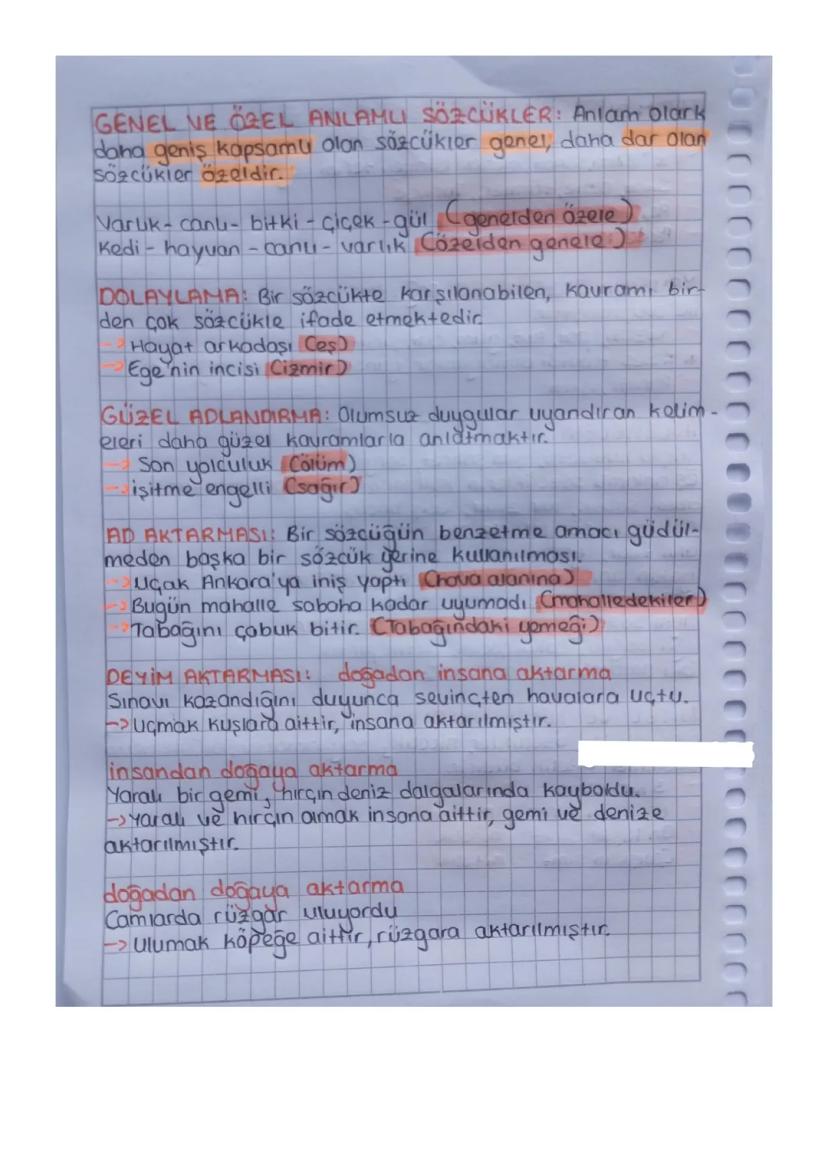 GENEL VE ÖZEL ANLAMLI SÖZCÜKLER: Anlam olark
daha geniş kapsamlı olan sözcükler genel, daha dar olan
sözcükler özeldir.
Varlık - canlı - bitki - çiçek - gül (genelden özele)
Kedi - hayvan - canlı - varlık (özelden genele)
DOLAYLAMA: Bir sözcükte karşılanabilen, kavramı bir-
den çok sözcükle ifade etmektedir.
-> Hayat arkadaşı (eş)
-> Ege'nin incisi (izmir)
GÜZEL ADLANDIRMA: Olumsuz duygular uyandıran kelim-
eleri daha güzel kavramlarla anlatmaktır.
-> Son yolculuk (ölüm)
-> işitme engelli (sağır)
AD AKTARMASI: Bir sözcüğün benzetme amacı güdül-
meden başka bir sözcük yerine kullanılması.
-> Uçak Ankara'ya iniş yaptı (hava alanına)
-> Bugün mahalle sabaha kadar uyumadı (mahalledekiler)
-> Tabağını çabuk bitir. (Tabağındaki yemeği)
DEYİM AKTARMASI: doğadan insana aktarma
Sınavı kazandığını duyunca sevinçten havalara uçtu.
-> Uçmak kuşlara aittir, insana aktarılmıştır.
insandan doğaya aktarma
Yaralı bir gemi, hırçın deniz dalgalarında kayboldu.
-> Yaralı ve hırçın olmak insana aittir, gemi ve denize
aktarılmıştır.
doğadan doğaya aktarma
Camlarda rüzgar uluyordu
-> Ulumak köpeğe aittir, rüzgara aktarılmıştır.